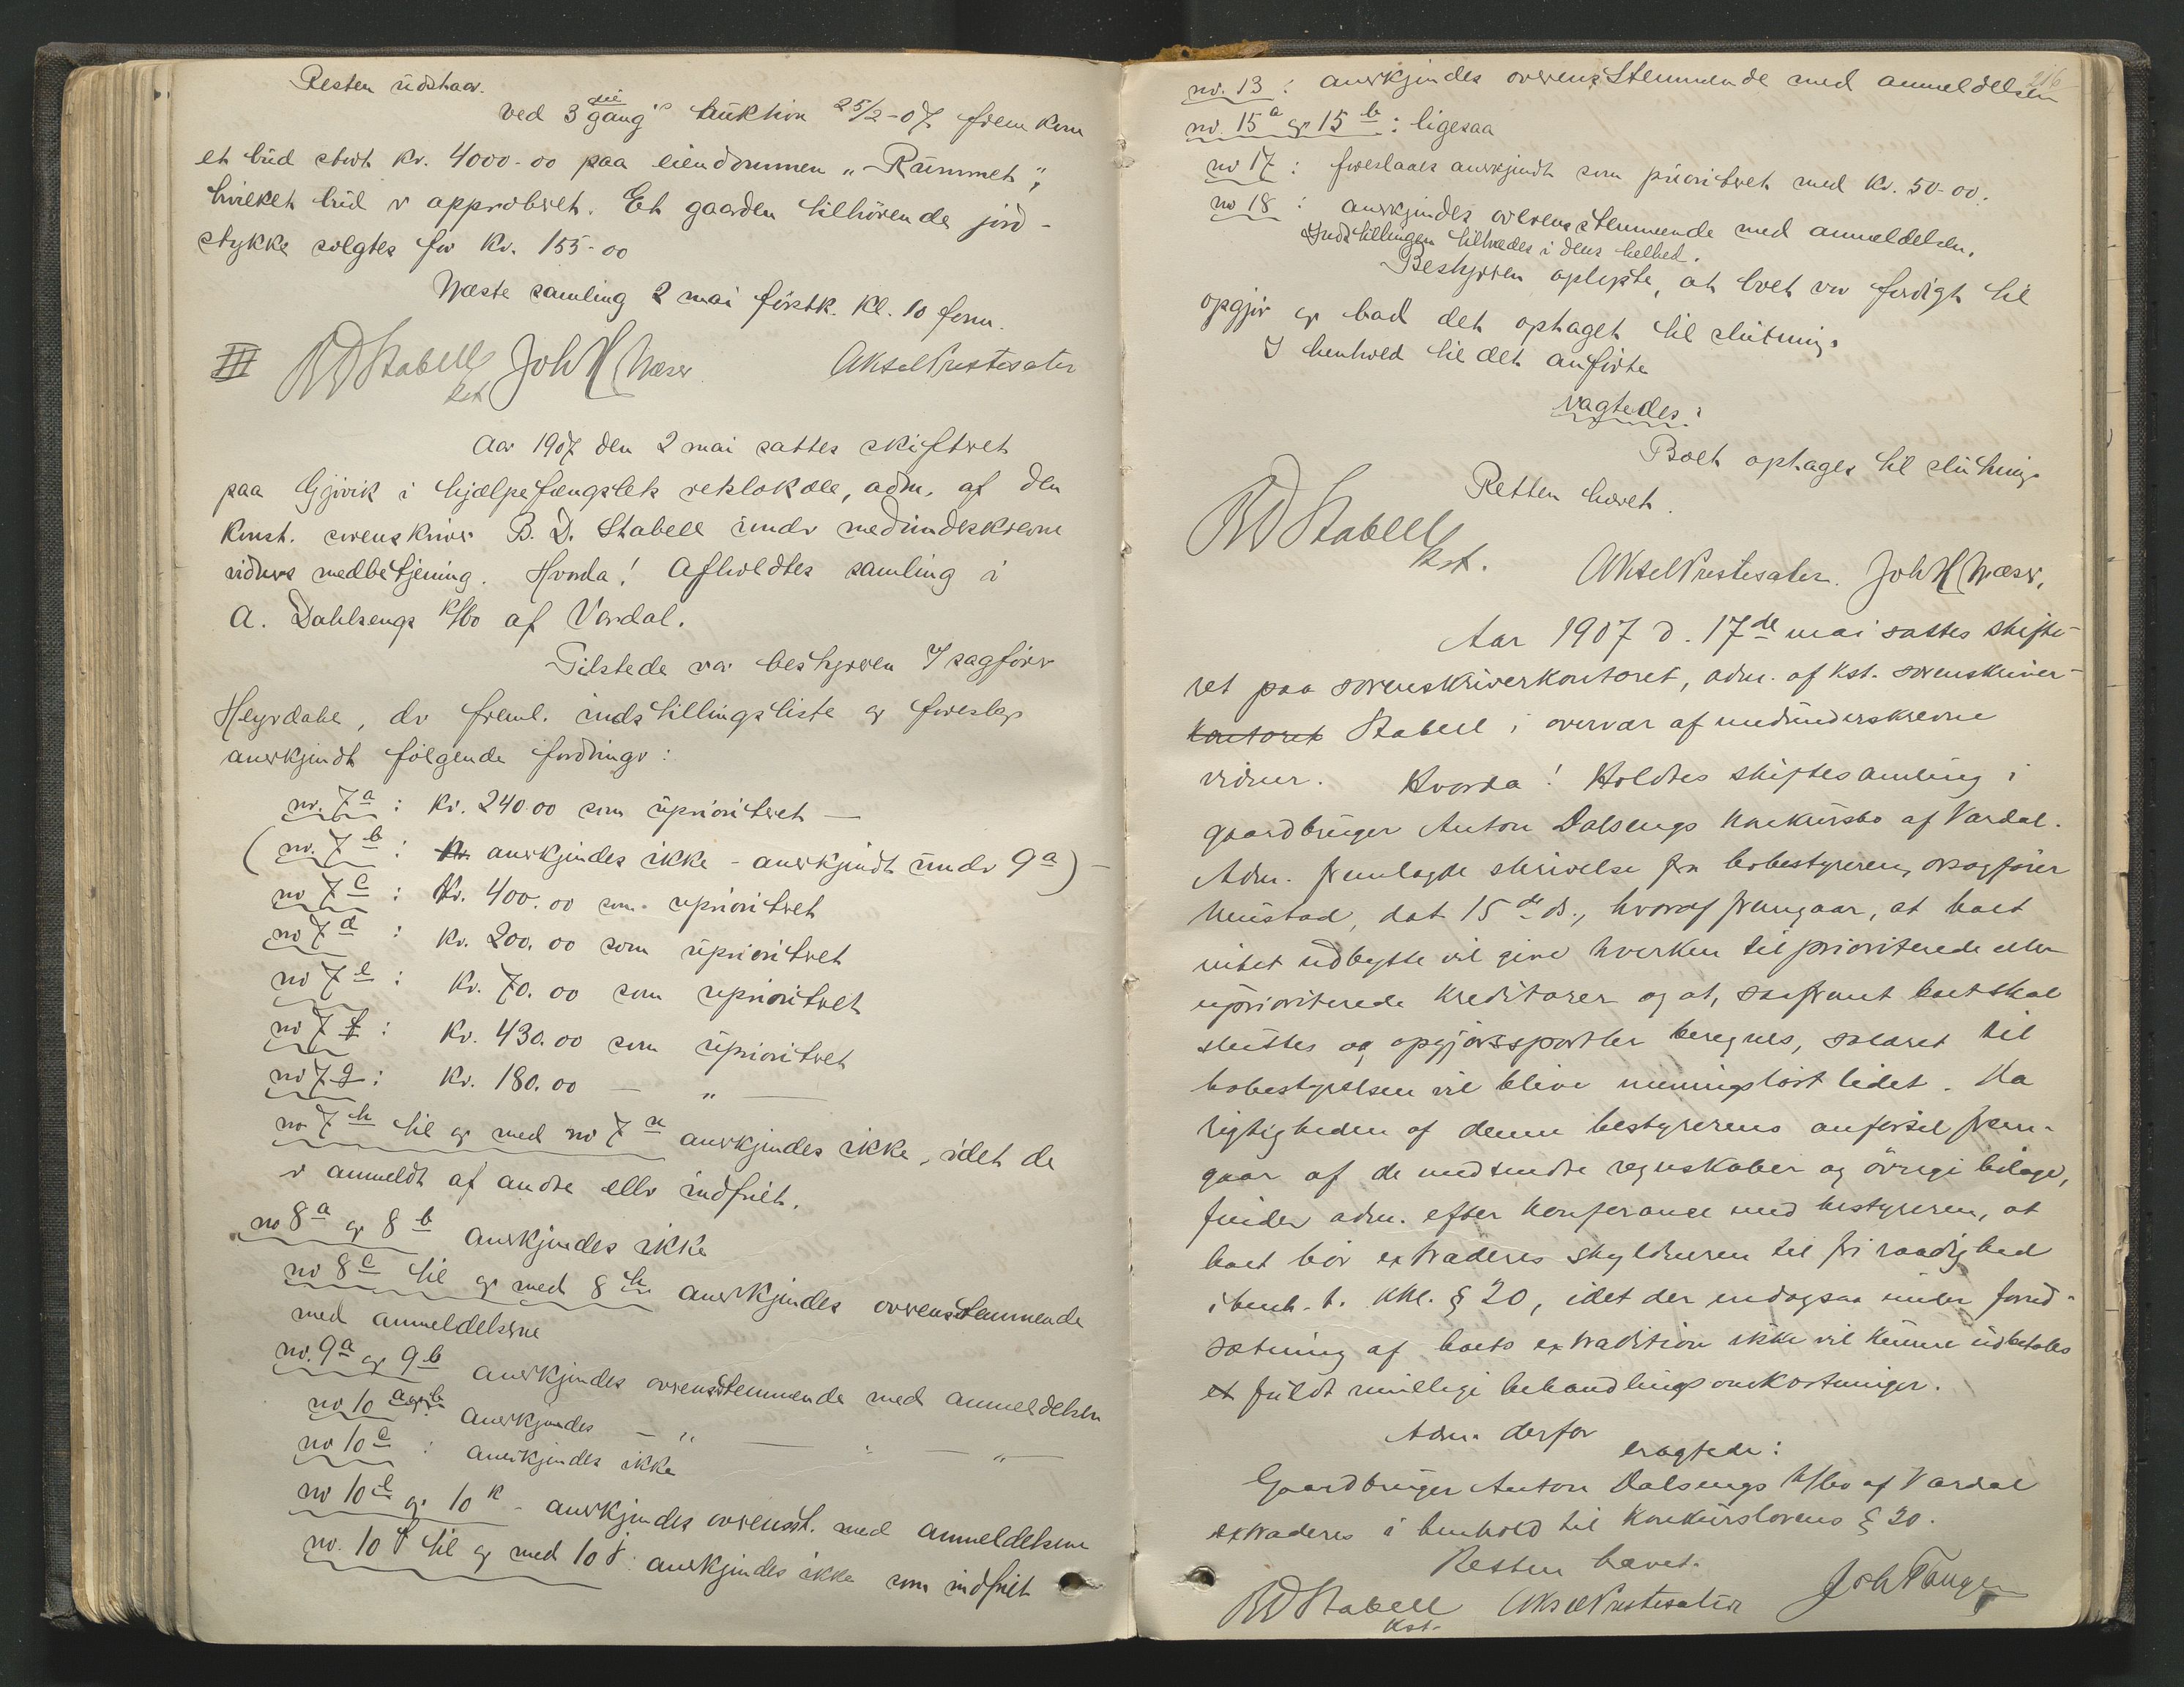 Resten udstaar.
ved 3die gangs auktion 25/2-07 frem kom
et bud stort kr. 4000-00 paa eiendommen "Rummet",
hvilket bud er approberet. Et gaarden tilhörende jord-
stykke solgtes for kr. 155-00
Næste samling 2 mai förstk. kl. 10 form.
III BD Stabell kst Joh H Næser Aksel Prestesæter
Aar 1907 den 2 mai sattes skifteret
paa Gjövik i hjælpefængslets retslokale, adm. af den
konst. sorenskriver B. D. Stabell under medundeskrevne
vidners medbetjening. Hvorda! Afholdtes samling i
A. Dahlsengs k/bo af Vardal.
Tilstede var bestyreren O sagförer
Heyrdahl, der freml. indstillingsliste og foreslog
anerkjendt fölgende fordringer:
nr. 7a : kr. 240.00 som uprioritert —
(nr. 7b : kr. anerkjendes ikke - anerkjendt under 9a) -
no 7c : Kr. 400.00 som uprioritert
no 7d : kr. 200.00 som uprioritert
no 7e : kr. 70.00 som uprioritert
no 7f : kr. 430.00 som uprioritert
no 7g : kr. 180.00 — " —
no 7h til og med no 7n anerkjendes ikke, idet de
er anmeldt af andre eller indfriet.
no 8a og 8b anerkjendes ikke
no 8c til og med 8h anerkjendes overensstemmende
med anmeldelserne
no. 9a og 9b anerkjendes overensstemmende med anmeldelsen
no 10 a og b: anerkjendes — " — " — " —
no 10c : anerkjendes ikke
no 10e og 10k - anerkjendes overensst. med anmeldelserne
no. 10f til og med 10j: anerkjendes ikke som indfriet
216
no. 13 : anerkjendes overensstemmende med anmeldelsen
no. 15a og 15b : ligesaa
no 17 : foreslaaes anerkjendt som prioriteret med kr. 50-00.
no 18 : anerkjendes overensstemmende med anmeldelsen.
Indstillingen tiltrædes i dens helhed.
Bestyreren oplyste, at boet var ferdigt til
opgjör og bad det optaget til slutning.
I henhold til det anförte
eragtedes:
Boet optages til slutning
Retten hævet.
BD Stabell kst. Aksel Prestesæter. Joh H Næser,
Aar 1907 d. 17de mai sattes skifte-
ret paa sorenskriverkontoret, adm. af kst. sorenskriver-
kontoret Stabell i overvær af medunderskrevne
vidner. Hvorda! Holdtes skiftesamling i
gaardbruger Anton Dalsengs konkursbo af Vardal.
Adm. fremlagde skrivelse fra bobestyreren, osagförer
Mustad, dat 15de ds., hvoraf fremgaar, at boet
intet udbytte vil give hverken til prioriterede eller
uprioriterede kreditorer og at, saafremt boet skal
sluttes og opgjörssportler beregnes, salæret til
bobestyrelsen vil blive meningslöst lidet. Da
rigtigheden af denne bestyrerens anförsel frem-
gaar af de medsendte regnskaber og övrige bilage,
finder adm. efter konferance med bestyreren, at
boet bör extraderes skyldneren til fri raadighed
i henh. t. kkl. § 20, idet der endogsaa under forud-
sætning af boets extradition ikke vil kunne udbetales
et fuldt rimelige behandlingsomkostninger.
Adm. derfor
eragtede:
Gaardbruger Anton Dalsengs k/bo af Vardal
extraderes i henhold til konkurslovens § 20.
Retten hævet.
BD Stabell kst. Aksel Prestesæter Joh Tangen